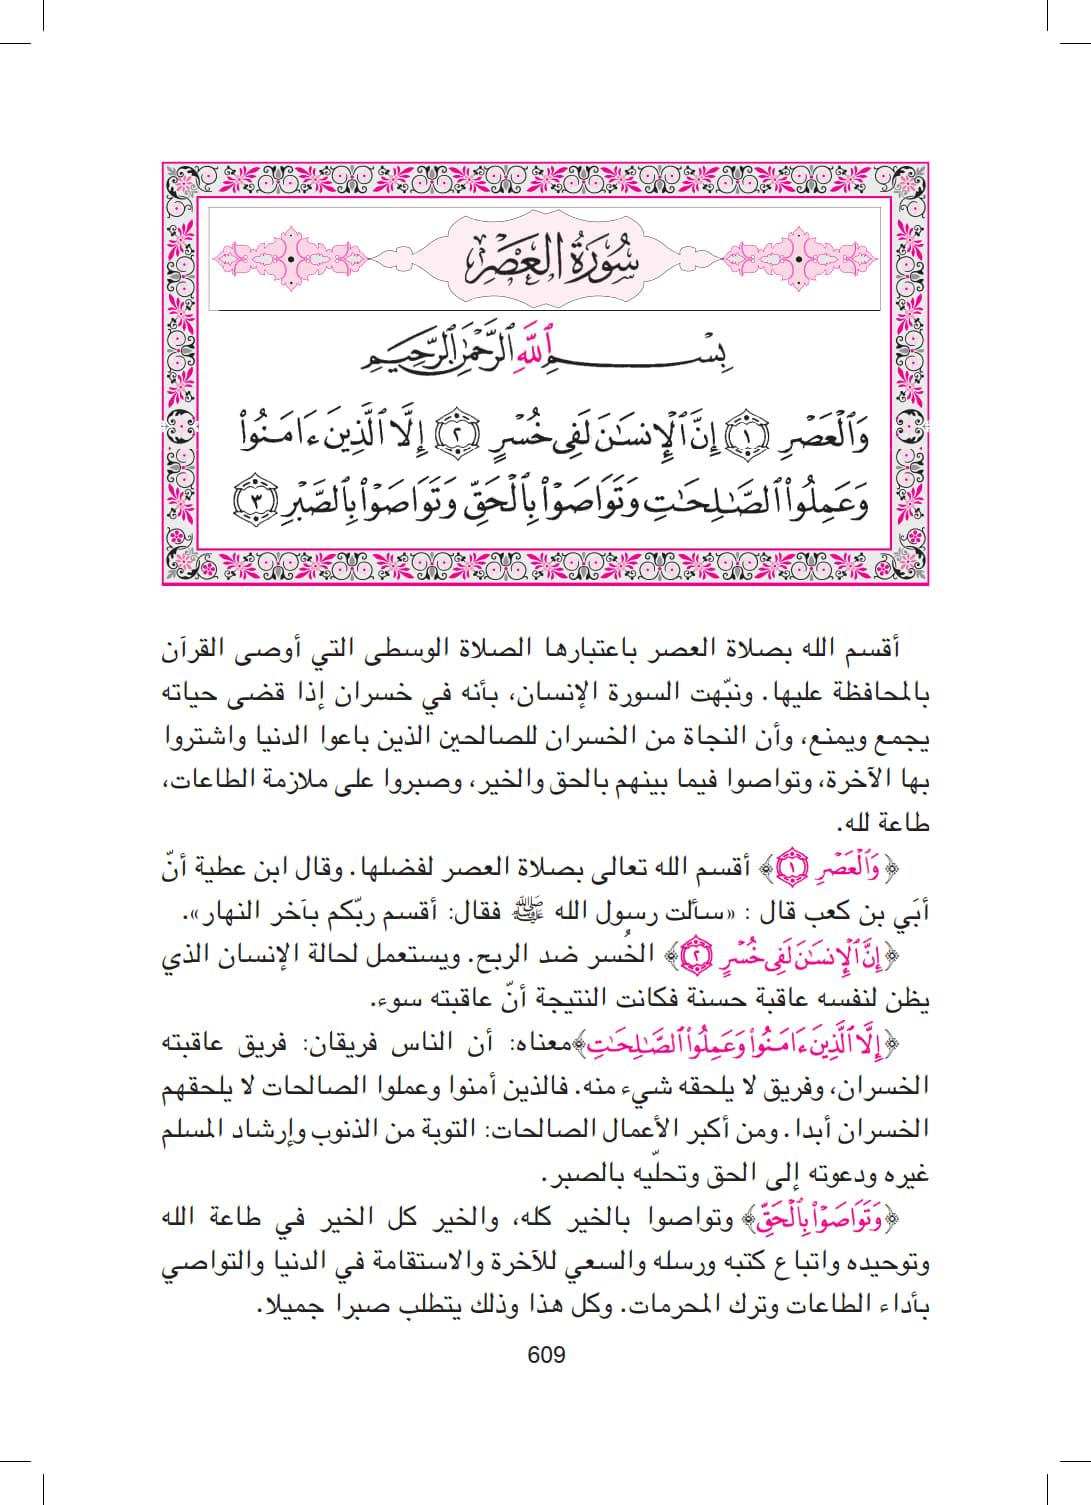 سُورَةُ العَصْرِ
بِسْمِ ٱللَّهِ ٱلرَّحْمَٰنِ ٱلرَّحِيمِ
وَٱلْعَصْرِ ١ إِنَّ ٱلْإِنسَٰنَ لَفِى خُسْرٍ ٢ إِلَّا ٱلَّذِينَ ءَامَنُوا۟
وَعَمِلُوا۟ ٱلصَّٰلِحَٰتِ وَتَوَاصَوْا۟ بِٱلْحَقِّ وَتَوَاصَوْا۟ بِٱلصَّبْرِ ٣
أقسم الله بصلاة العصر باعتبارها الصلاة الوسطى التي أوصى القرآن
بالمحافظة عليها. ونبّهت السورة الإنسان، بأنه في خسران إذا قضى حياته
يجمع ويمنع، وأن النجاة من الخسران للصالحين الذين باعوا الدنيا واشتروا
بها الآخرة، وتواصوا فيما بينهم بالحق والخير، وصبروا على ملازمة الطاعات،
طاعة لله.
﴿وَٱلْعَصْرِ ١﴾ أقسم الله تعالى بصلاة العصر لفضلها. وقال ابن عطية أنّ
أبَي بن كعب قال : «سألت رسول الله ﷺ فقال: أقسم ربّكم بآخر النهار».
﴿إِنَّ ٱلْإِنسَٰنَ لَفِى خُسْرٍ ٢﴾ الخُسر ضد الربح. ويستعمل لحالة الإنسان الذي
يظن لنفسه عاقبة حسنة فكانت النتيجة أنّ عاقبته سوء.
﴿إِلَّا ٱلَّذِينَ ءَامَنُوا۟ وَعَمِلُوا۟ ٱلصَّٰلِحَٰتِ﴾معناه: أن الناس فريقان: فريق عاقبته
الخسران، وفريق لا يلحقه شيء منه. فالذين أمنوا وعملوا الصالحات لا يلحقهم
الخسران أبدا. ومن أكبر الأعمال الصالحات: التوبة من الذنوب وإرشاد المسلم
غيره ودعوته إلى الحق وتحلّيه بالصبر.
﴿وَتَوَاصَوْا۟ بِٱلْحَقِّ﴾ وتواصوا بالخير كله، والخير كل الخير في طاعة الله
وتوحيده واتباع كتبه ورسله والسعي للآخرة والاستقامة في الدنيا والتواصي
بأداء الطاعات وترك المحرمات. وكل هذا وذلك يتطلب صبرا جميلا.
609